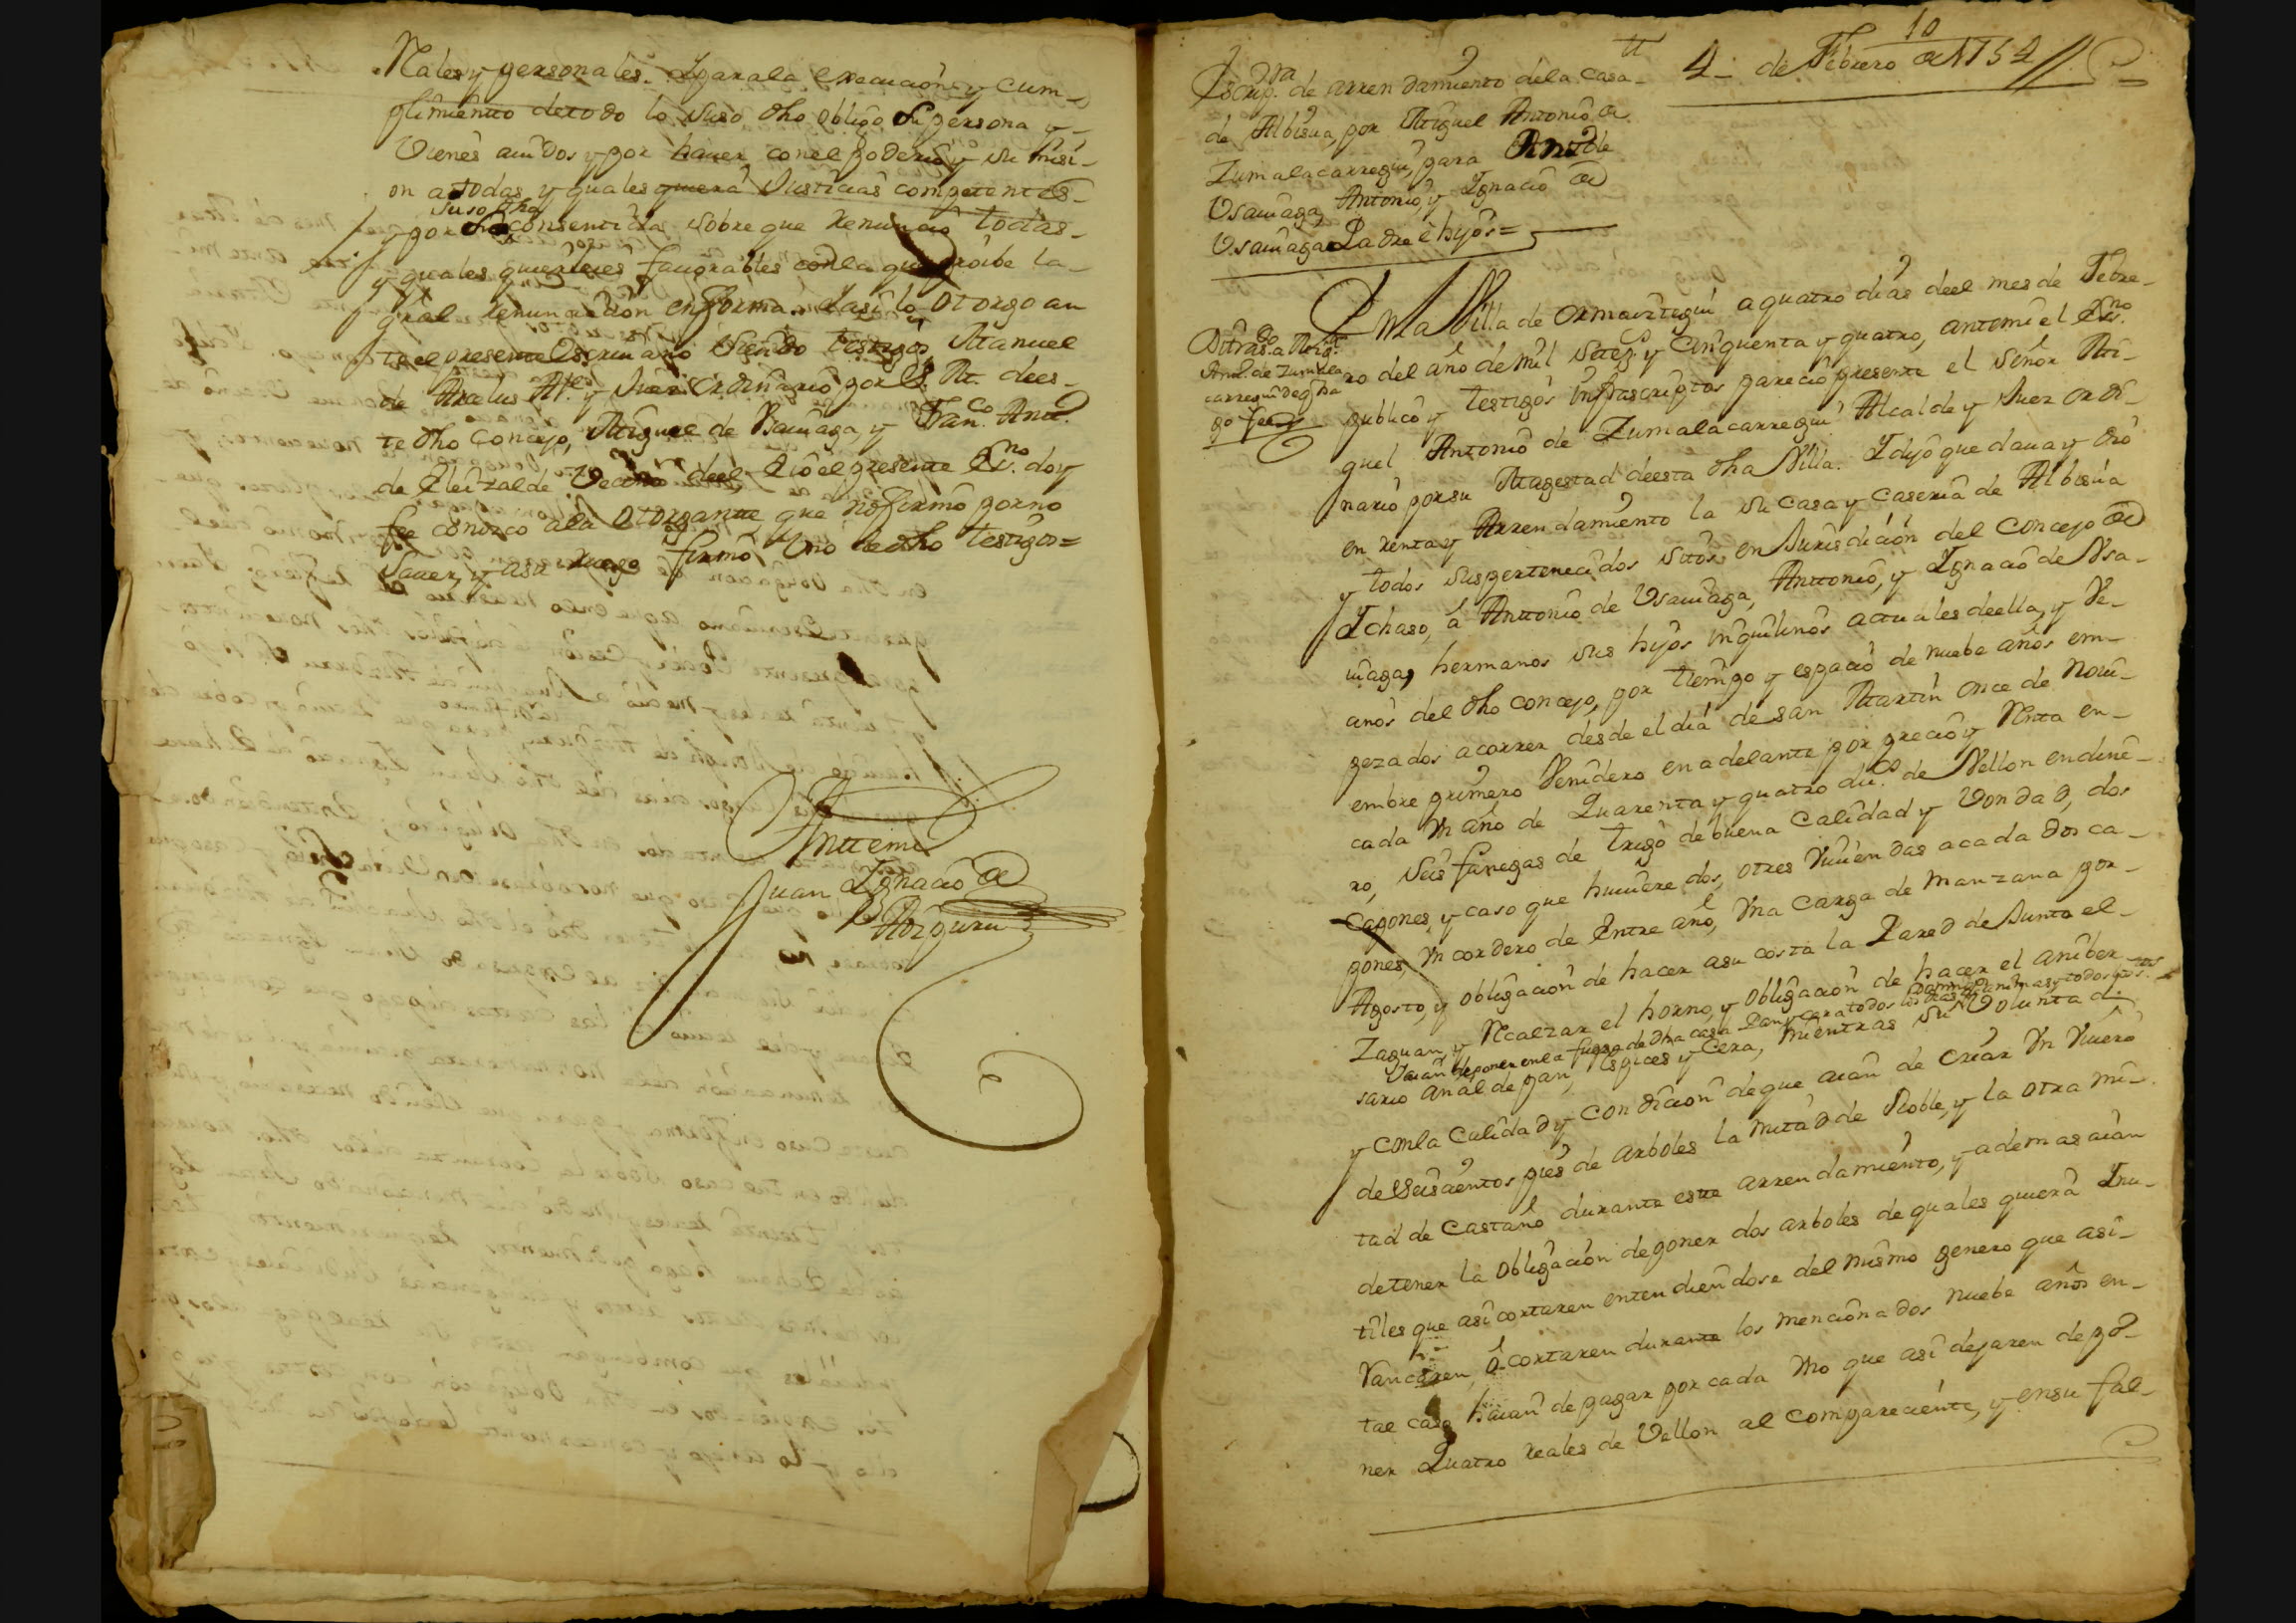 Rales y personales. Y para la execucion y cum-
plimiento de todo lo suso dho obligo su persona y
Vienes auidos y por hauer con el poderio y su misi-
on a todas y quales quiera Justicias competentes
suso dha
y por consentida sobre que renuncio todas
y quales quier leies fauorables con la que proibe la
gral renunciacion en forma. Y asi lo otorgo an
te el presente Escriuano siendo testigos Manuel
de Aralus Alce. y Juez ordinario por S. M. de es-
te dho Concejo, Miguel de Vsauiaga, y Franco. Antto.
de Eleizalde Vecinos de el, E io el presente Esno. doy
fee conozco a la otorgante, que no firmo por no
Sauer, y a su ruego firmo Vno de dho testigos=
Antte mi
Juan Ignacio de
Aizguru
10
4 de Febrero de 1754
Escripra. de arrendamiento de la Casa
de Albisua, por Miguel Antonio de
Zumalacarregui, para Antto. de
Vsauiaga, Antonio, y Ignacio de
Vsauiaga Padre e hijos=
En la Villa de Ormaiztegui a quatro dias de el mes de Febre-
ro del año de mil setezs. y Cinquenta y quatro, ante mi el Esno.
publico y testigos infrascriptos parecio presente el señor Mi-
guel Antonio de Zumalacarregui Alcalde y Juez ordi-
nario por su Magestad de esta dha Villa. Y dijo que daua y dio
en renta y Arrendamiento la su Casa y Caseria de Albisua
y todos sus pertenecidos sitos en Jurisdicion del Concejo de
Ichaso, á Anttonio de Vsauiaga, Anttonio, y Ignacio de Vsa-
uiaga, hermanos sus hijos inquilinos actuales de ella, y Ve-
cinos del dho Concejo, por tiempo y espacio de nuebe años em-
pezados a correr desde el dia de san Martin once de Noui-
embre primero Venidero en adelante por precio y Renta en
cada Vn año de Quarenta y quatro ducs. de Vellon en dine-
ro, seis fanegas de trigo de buena Calidad y Vondad, dos
Capones, y caso que huuiere dos, o tres Viuiendas a cada dos ca-
pones, Vn cordero de Entre año, Vna Carga de Manzana por
Agosto, y obligacion de hacer a su costa la Pared de Junto el
Zaguan, y Realzar el horno, y obligacion de hacer el aniber-
sario anal de pan, espices y Cera, mientras su Voluntad.
y con la Calidad y Condicion de que aian de criar Vn Viuero
de seiscientos pies de arboles la mitad de Roble, y la otra mi-
tad de Castaño durante este arrendamiento, y ademas aian
de tener la obligacion de poner dos arboles de quales quiera Inu-
tiles que asi cortaren entendiendose del mismo genero que asi
Vancaren, ó cortaren durante los mencionados nuebe años en
tal caso haian de pagar por cada Vno que asi dejaren de po-
ner Quatro reales de Vellon al compareciente, y en su fal-